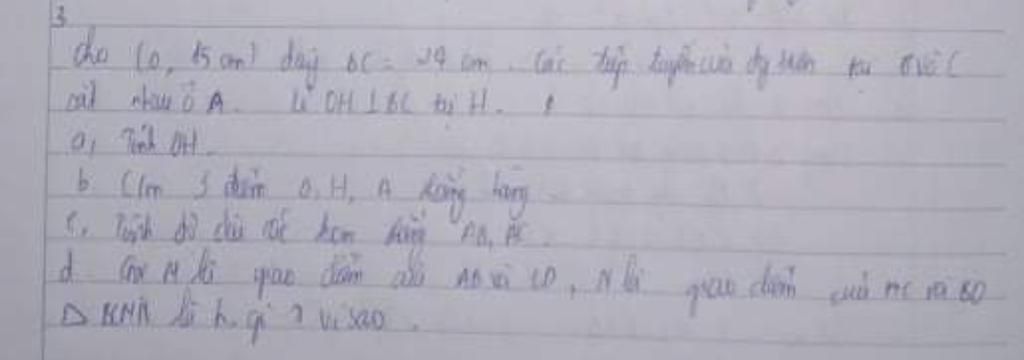 3
Cho (O, 15 cm) dây BC = 24 cm. Các tiếp tuyến của đg tròn tại B và C
cắt nhau ở A. kẻ OH ⊥ BC tại H.
a, Tính OH.
b C/m 3 điểm O, H, A thẳng hàng
c, Tính độ dài các đoạn thẳng AB, AC.
d Gọi M là giao điểm của AB và CO, N là giao điểm của AC và BO
BCNM là h. gì ? vì sao.